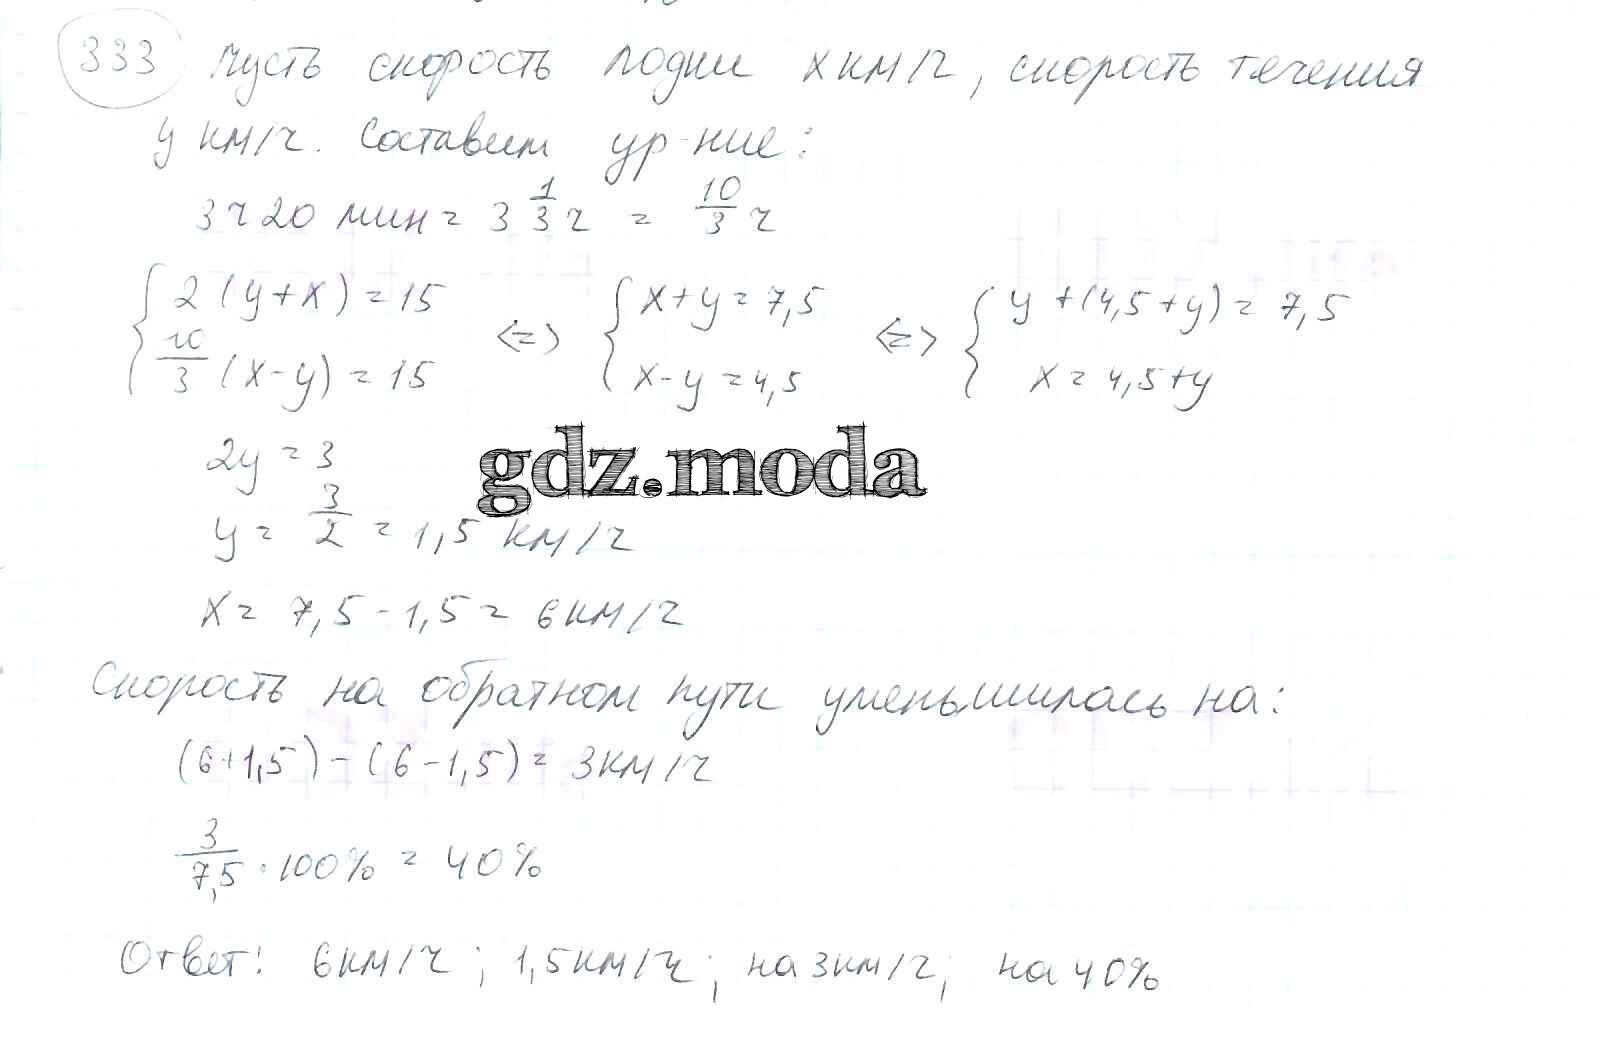 333 Пусть скорость лодки x км/ч, скорость течения
y км/ч. Составим ур-ние:
3ч 20 мин = 3 1/3 ч = 10/3 ч
{ 2(y+x) = 15 <=> { x+y = 7,5 <=> { y+(4,5+y) = 7,5
10/3 (x-y) = 15 x-y = 4,5 x = 4,5+y
2y = 3
gdz.moda
y = 3/2 = 1,5 км/ч
x = 7,5 - 1,5 = 6 км/ч
Скорость на обратном пути уменьшилась на:
(6+1,5) - (6-1,5) = 3 км/ч
3/7,5 · 100% = 40%
Ответ: 6 км/ч; 1,5 км/ч; на 3 км/ч; на 40%